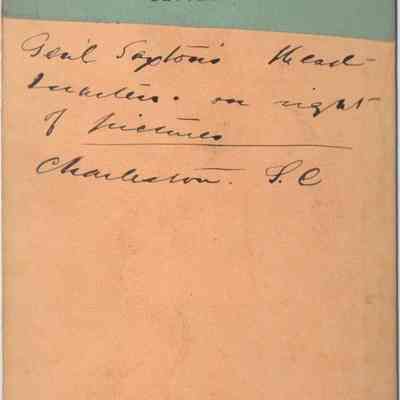 Genl Saxton's Head-
Quarters. on right
of pictures
Charleston. S.C